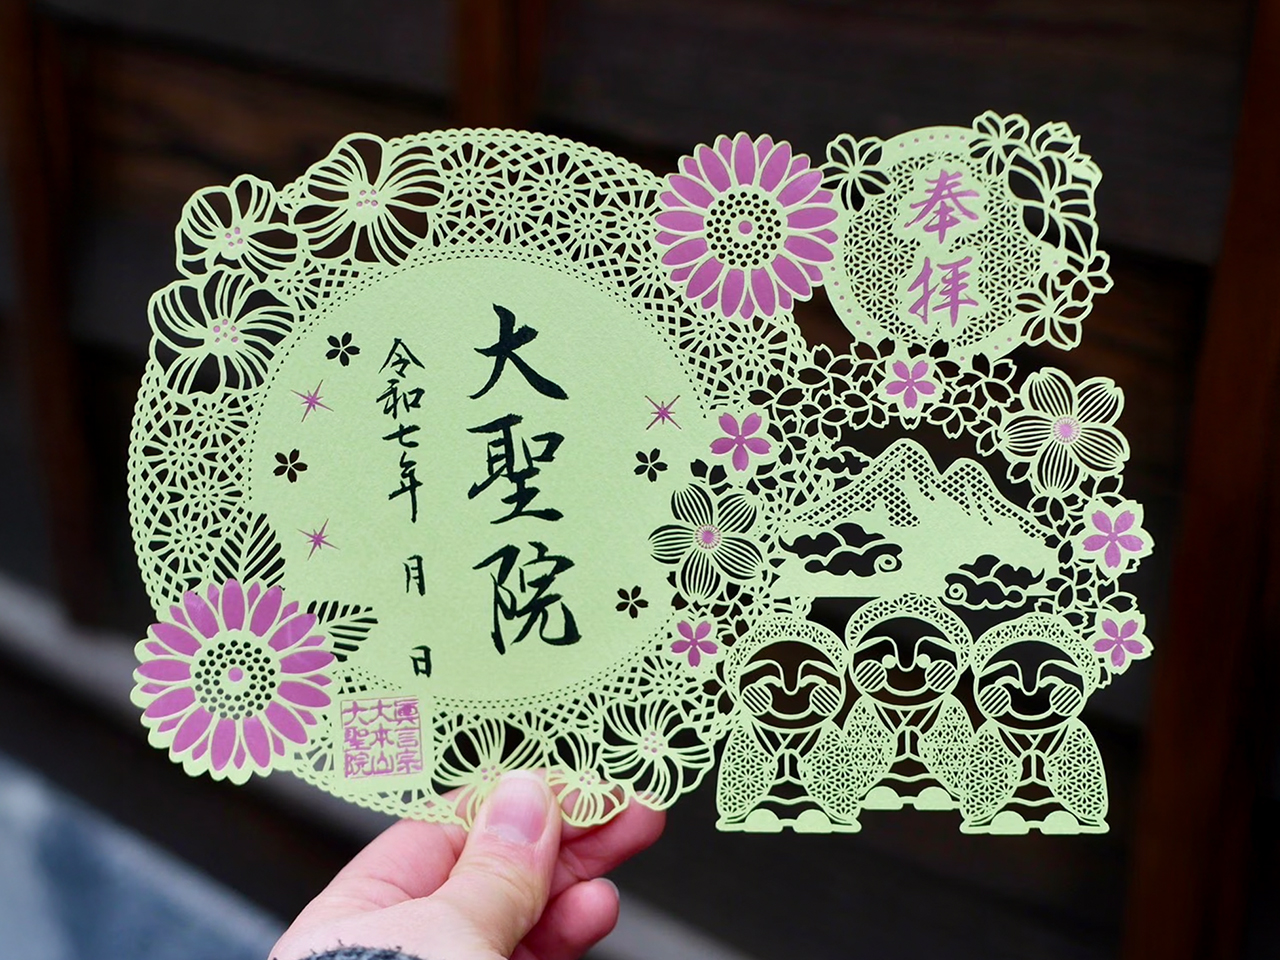 奉拝
大聖院
令和七年 月 日
眞言宗
大本山
大聖院